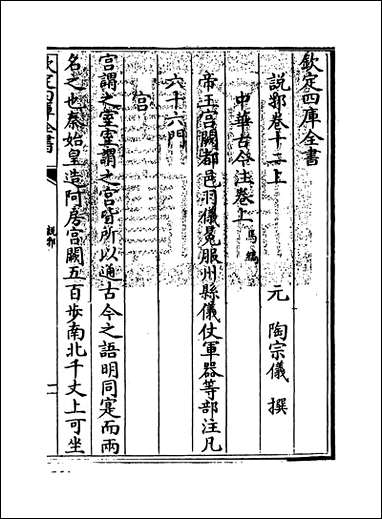 欽定四庫全書
説郛卷十二上
元 陶宗儀 撰
中華古今注卷上 馬縞
帝王宫闕都邑羽儀冕服州縣儀仗軍器等部注凡
六十六門
宫
宫謂之室室謂之宫皆所以通古今之語明同寔而兩
名之也秦始皇造阿房宫闕五百歩南北千丈上可坐
欽定四庫全書
説郛